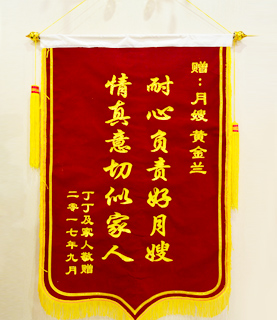 赠：月嫂 黄金兰
耐心负责好月嫂
情真意切似家人
丁丁及家人敬赠
二零一七年九月